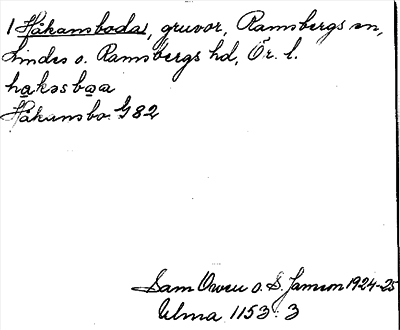 1 Håkansboda, gruvor, Ramsbergs sn,
Lindes o. Ramsbergs hd, Ör. l.
hạkəsbọa
Håkansbo. G 82
Sam Owen o. S. Janson 1924-25
Ulma 1153:3